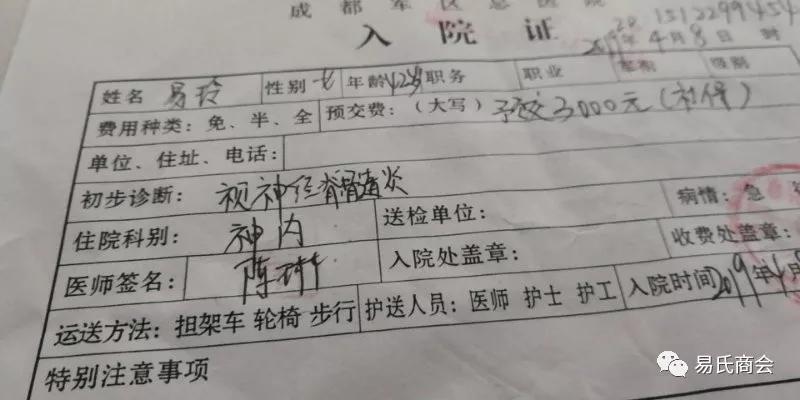 成都军区总医院
入院证
2019年4月8日 时
姓名 易玲 性别 女 年龄 42岁 职务 职业 级别
费用种类：免、半、全 预交费：（大写）予交3000元（社保）
单位、住址、电话：
初步诊断：视神经脊髓炎 病情：急
住院科别：神内 送检单位： 收费处盖章：
医师签名： 入院处盖章：
运送方法：担架车 轮椅 步行 护送人员：医师 护士 护工 入院时间2019年4月
特别注意事项
易氏商会